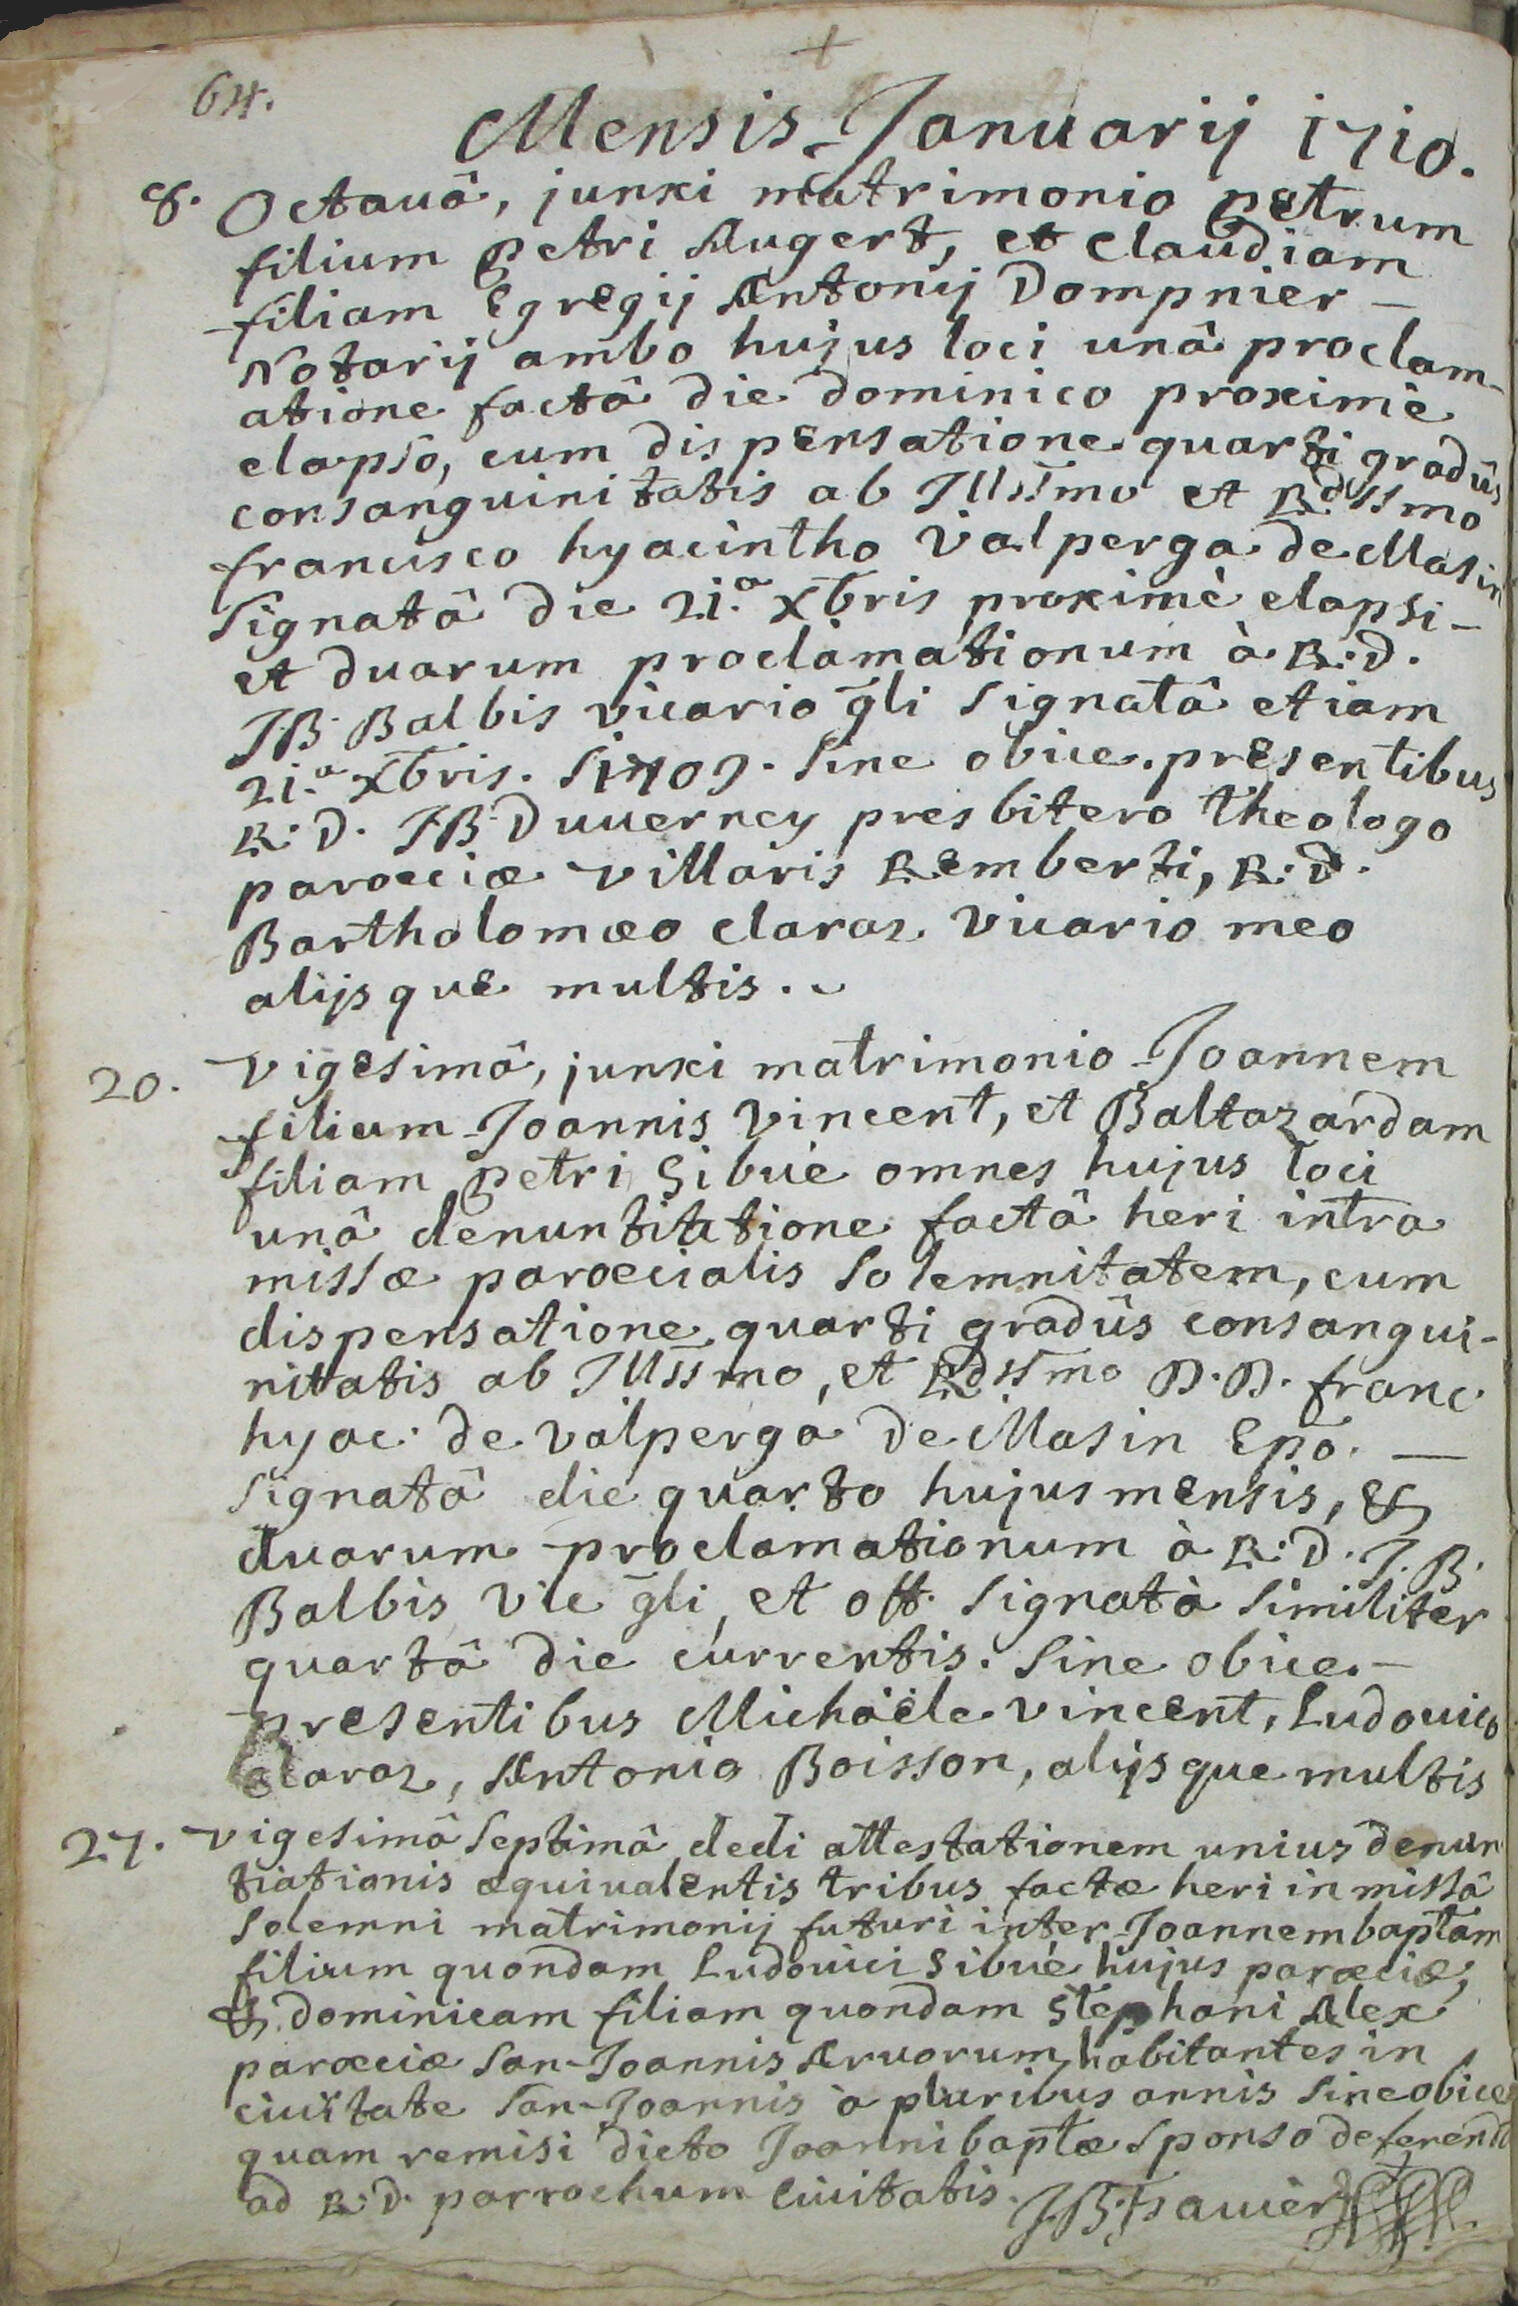 64.
Mensis Januarij 1710.
8. Octauâ, junxi matrimonio petrum
filium petri Augert, et claudiam
filiam Egregij Antonij Dompnier —
Notarij ambo hujus loci unâ proclam-
atione factâ die dominico proximè
elapso, cum dispensatione quarti gradûs
consanguinitatis ab Illssmo et Rdssmo
francisco hyacintho valperga de Masin
signatâ die 21.a Xbris proximè elapsi —
et duarum proclamationum à R: D.
J.B. Balbis vicario gli signatâ etiam
21.a Xbris. 1709. sine obice. presentibus
R: D. J.B. Duuerney presbitero theologo
paroeciæ villaris Remberti, R: D.
Bartholomæo claraz vicario meo
alijsque multis. ~
20. vigesimâ, junxi matrimonio Joannem
filium Joannis vincent, et Baltazardam
filiam petri Sibué omnes hujus loci
unâ denuntitatione factâ heri intra
missæ paroecialis solemnitatem, cum
dispensatione quarti gradûs consangui-
nitatis ab Illssmo, et Rdssmo D. D. franc.
hyac. de valperga de Masin Epõ. —
signatâ die quarto hujus mensis, &
duarum proclamationum à R: D. J. B.
Balbis vic gli, et off. signatà similiter
quartâ die currentis. sine obice. —
presentibus Michaële vincent, Ludouico
claraz, Antonio Boisson, alijsque multis
27. vigesimâ septimâ dedi attestationem unius denun
tiationis æquiualentis tribus factæ heri in missâ
solemni matrimonij futuri inter Joannem baptam
filium quondam Ludouici Sibué hujus paroeciæ,
& dominicam filiam quondam Stephani Alex
paroeciæ san-Joannis Aruorum habitantes in
ciuitate san-Joannis à pluribus annis sine obice
quam remisi dicto Joanni baptæ sponso deferend
ad R: D. parrochum ciuitatis.